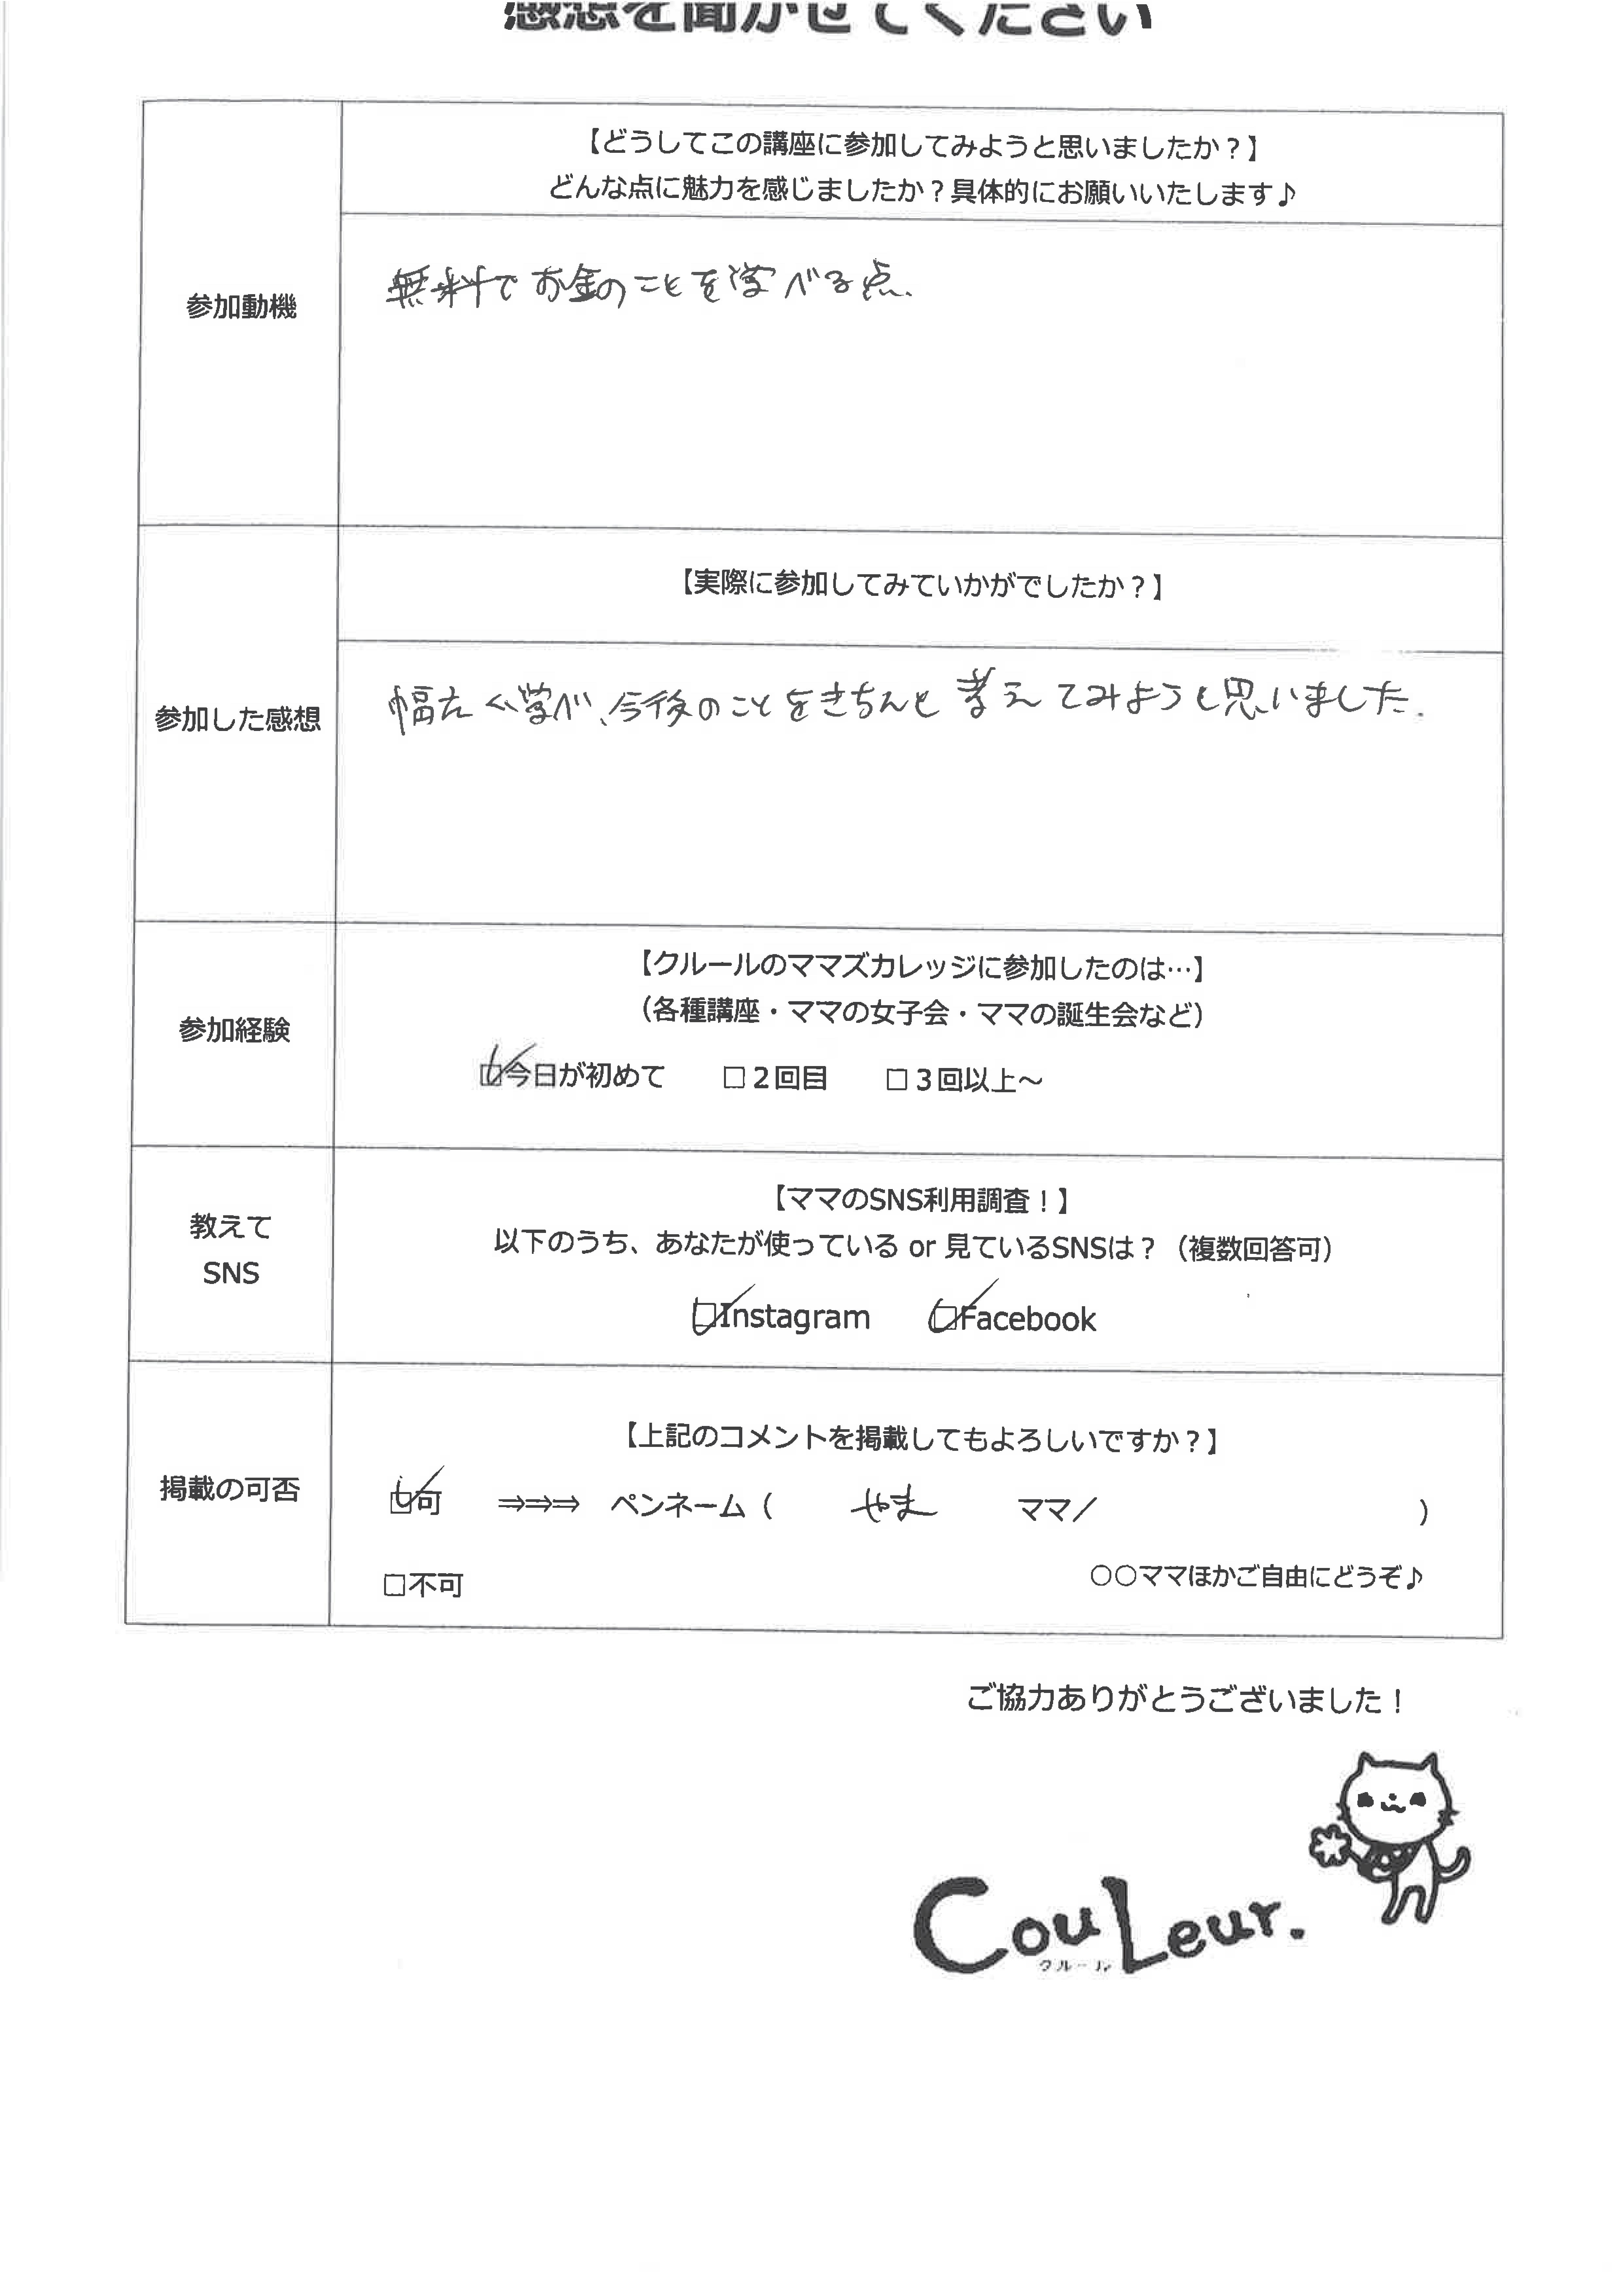 感想を聞かせてください
【どうしてこの講座に参加してみようと思いましたか？】
どんな点に魅力を感じましたか？具体的にお願いいたします♪
参加動機
無料でお金のことを学べる点.
【実際に参加してみていかがでしたか？】
参加した感想
幅広く学べ、今後のことをきちんと考えてみようと思いました.
【クルールのママズカレッジに参加したのは…】
（各種講座・ママの女子会・ママの誕生会など）
参加経験
☑今日が初めて □２回目 □３回以上～
【ママのSNS利用調査！】
教えて
SNS
以下のうち、あなたが使っている or 見ているSNSは？（複数回答可）
☑Instagram ☑Facebook
【上記のコメントを掲載してもよろしいですか？】
掲載の可否
☑可 ⇒⇒⇒ ペンネーム（ やま ママ／ ）
□不可 ○○ママほかご自由にどうぞ♪
ご協力ありがとうございました！
CouLeur.
クルール